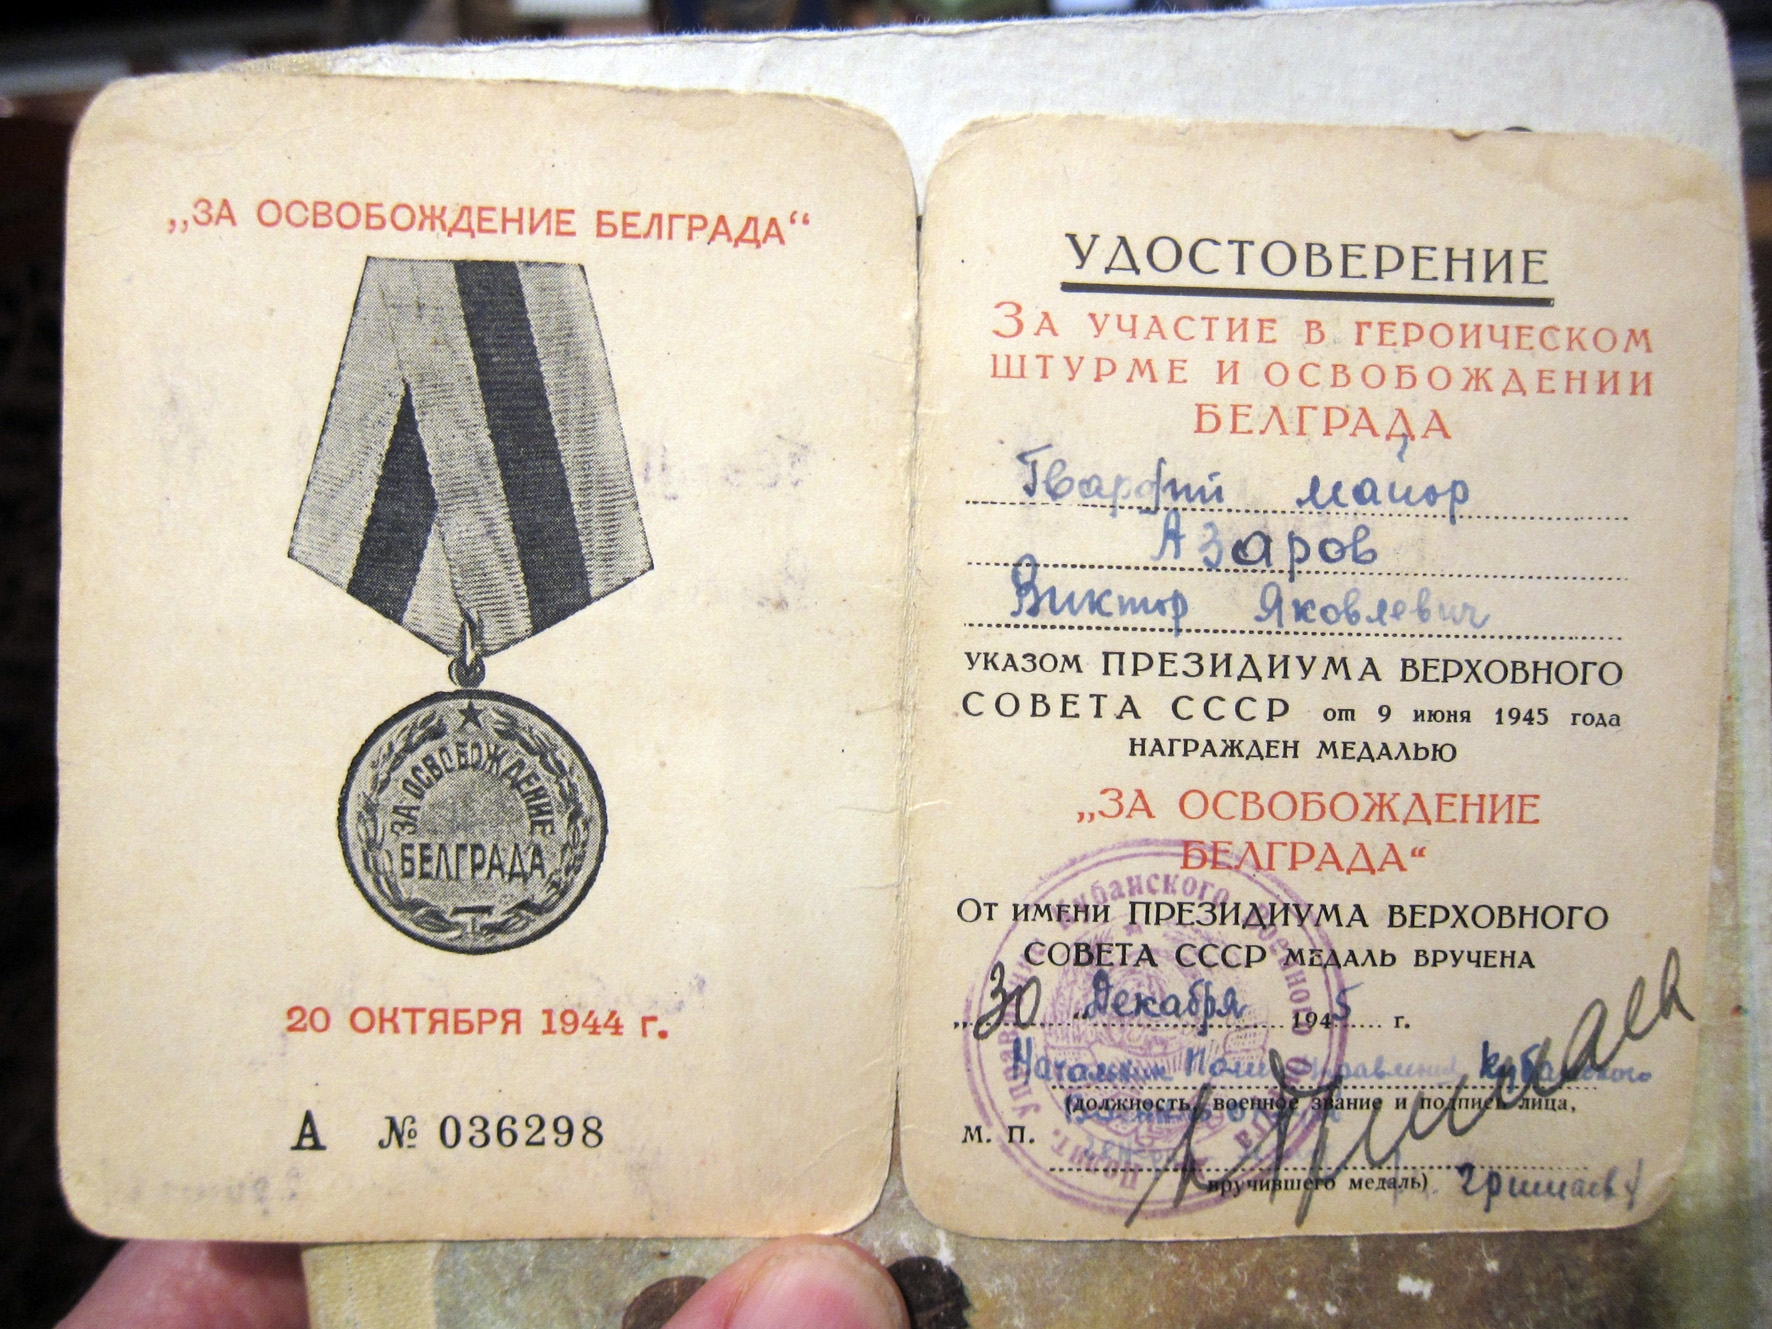 „ЗА ОСВОБОЖДЕНИЕ БЕЛГРАДА“
ЗА ОСВОБОЖДЕНИЕ
БЕЛГРАДА
20 ОКТЯБРЯ 1944 г.
А № 036298
УДОСТОВЕРЕНИЕ
ЗА УЧАСТИЕ В ГЕРОИЧЕСКОМ
ШТУРМЕ И ОСВОБОЖДЕНИИ
БЕЛГРАДА
Гвардии майор
Азаров
Виктор Яковлевич
УКАЗОМ ПРЕЗИДИУМА ВЕРХОВНОГО
СОВЕТА СССР от 9 июня 1945 года
НАГРАЖДЕН МЕДАЛЬЮ
„ЗА ОСВОБОЖДЕНИЕ
БЕЛГРАДА“
ОТ ИМЕНИ ПРЕЗИДИУМА ВЕРХОВНОГО
СОВЕТА СССР МЕДАЛЬ ВРУЧЕНА
„30 “ Декабря 1945 г.
Начальник Полит управления Кубанского
(должность, военное звание и подпись лица,
М. П.
вручившего медаль) Гришаев
Полит. Управление Кубанского Военного Округа